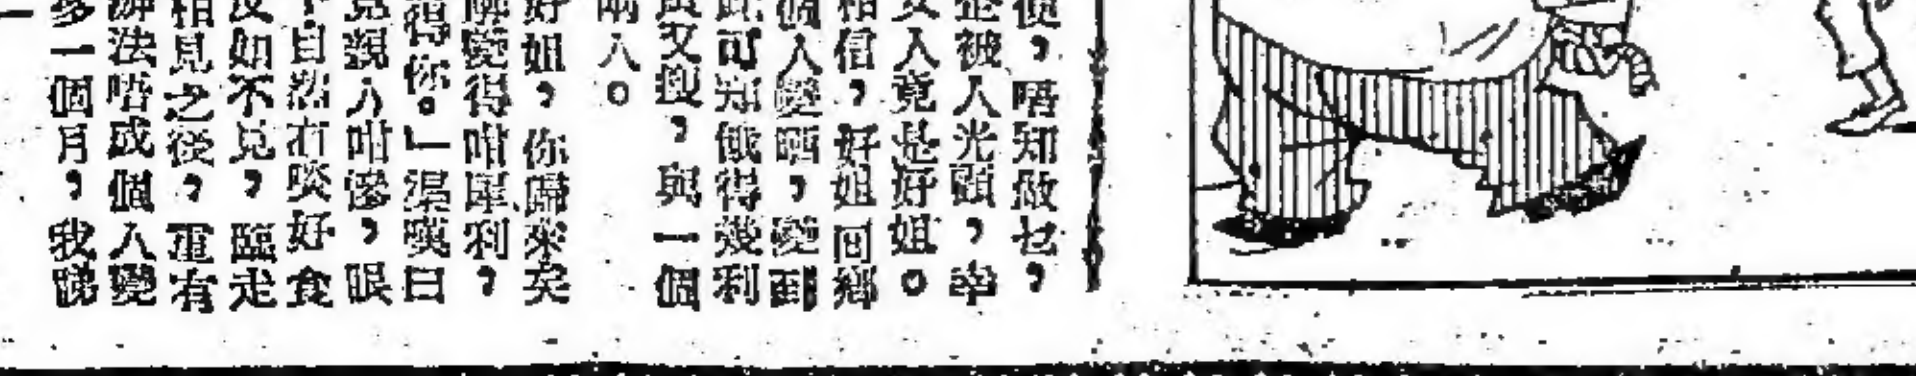 唔知做乜,
企被人光顧,幸
女人竟是好姐。
相信,好姐回鄉
個人變晒,變到
此可知餓得幾利
黃又瘦,與一個
兩人。
好姐,你歸來矣
變得咁犀利,
得你。」湿嘆曰
見親人咁慘,眼
自然冇啖好食
反如不見,臨走
相見之後,重有
辦法唔成個人變
多一個月,我睇